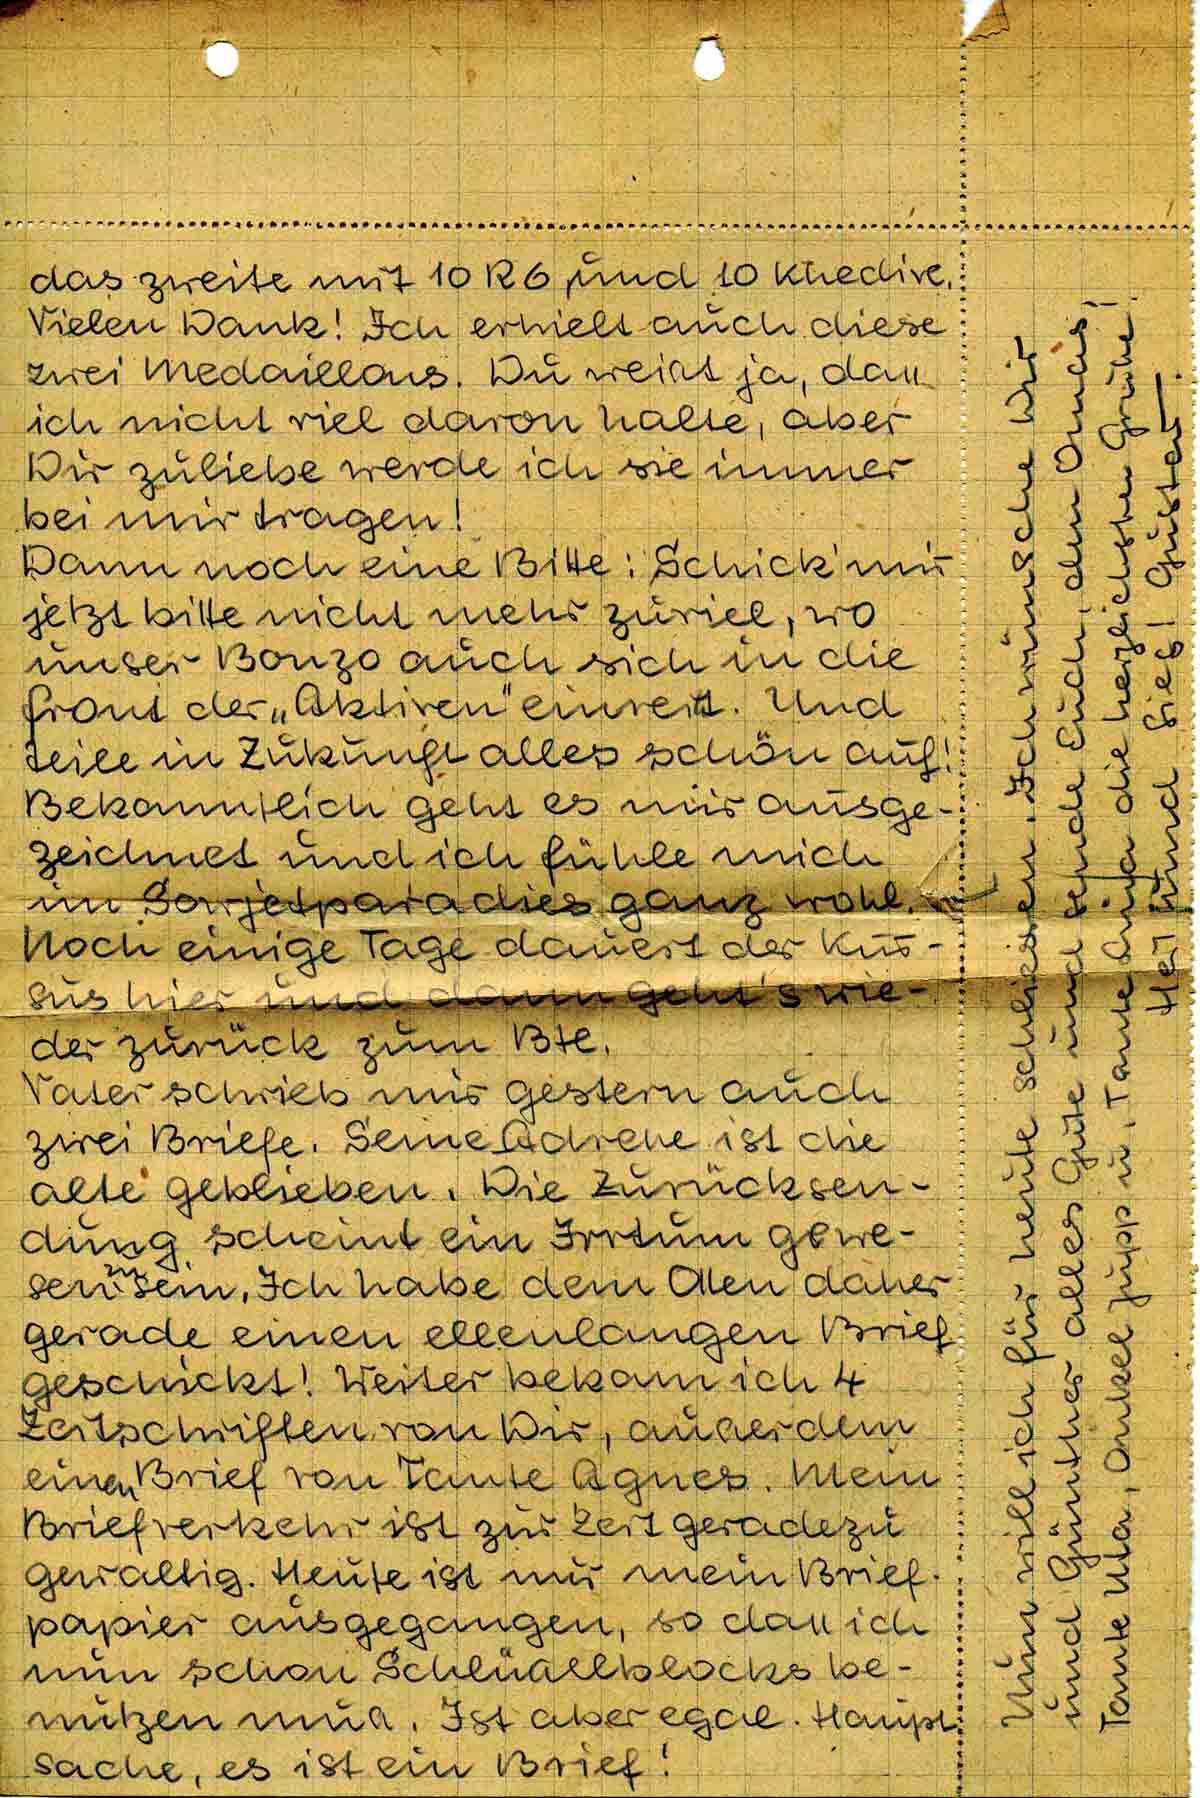 das zweite mit 10 R6 und 10 Khedive.
Vielen Dank! Ich erhielt auch diese
zwei Medaillons. Du weißt ja, daß
ich nicht viel davon halte, aber
Dir zuliebe werde ich sie immer
bei mir tragen!
Dann noch eine Bitte: Schick' mir
jetzt bitte nicht mehr zuviel, wo
unser Bonzo auch sich in die
Front der „Aktiven" einreiht. Und
teile in Zukunft alles schön auf!
Bekanntlich geht es mir ausge-
zeichnet und ich fühle mich
im Sowjetparadies ganz wohl.
Noch einige Tage dauert der Kur-
sus hier und dann geht's wie-
der zurück zum Btl.
Vater schrieb mir gestern auch
zwei Briefe. Seine Adreße ist die
alte geblieben. Die Zurücksen-
dung scheint ein Irrtum gewe-
sen zu sein. Ich habe dem Alten daher
gerade einen ellenlangen Brief
geschickt! Weiter bekam ich 4
Zeitschriften von Dir, außerdem
einen Brief von Tante Agnes. Mein
Briefverkehr ist zur Zeit geradezu
gewaltig. Heute ist mir mein Brief-
papier ausgegangen, so daß ich
nun schon Schlußblocks be-
nutzen muß. Ist aber egal. Haupt
sache, es ist ein Brief!
Nun will ich für heute schliessen. Ich wünsche Dir
und Günther alles Gute und sende Euch, den Omas,
Tante Ula, Onkel Jupp u. Tante Änna die herzlichsten Grüße!
Heil und Sieg! Gustav.